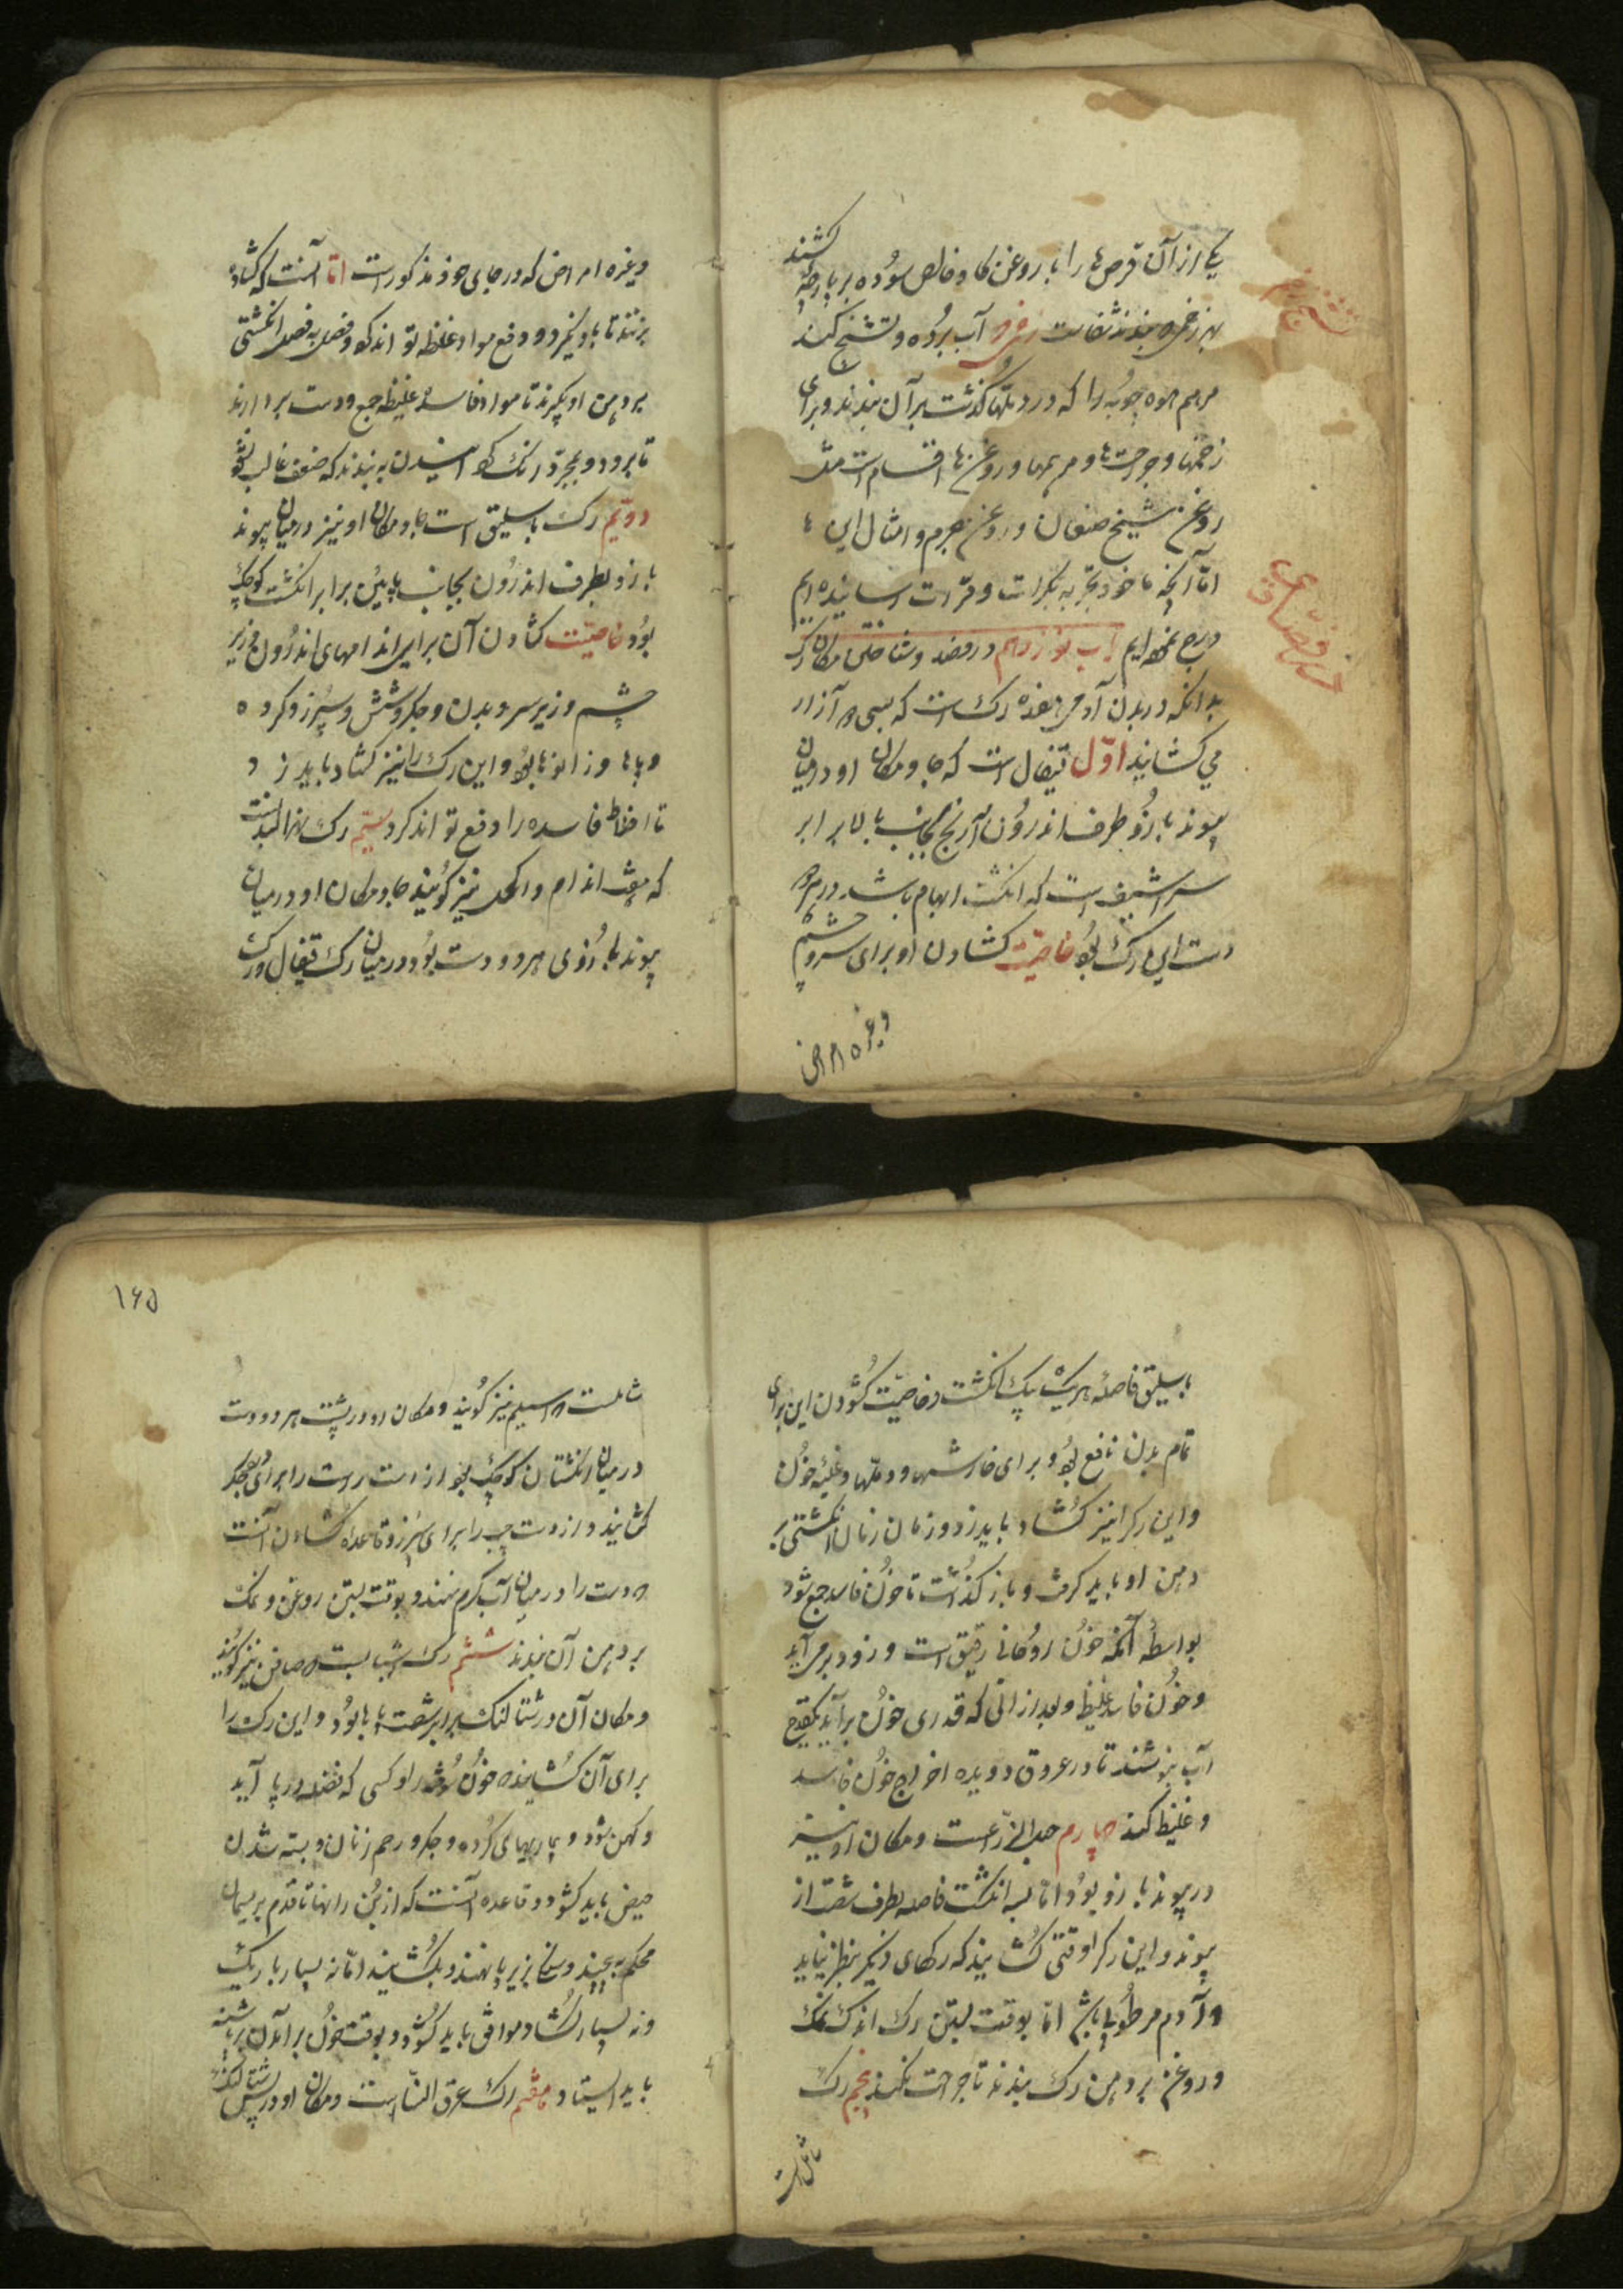 یکی از آن قرص‌ها را با روغن کاو خالص سوده بر پارچه کشند
بر زخم بندند شفاست آب برده و تشنج کند
مرهم چوبه را که در دملها گذشت بر آن بندند و برای
زخمها و جراحت‌ها و مرهمها و روغن‌ها اقسام است
روغن شیخ صنعان و روغن و امثال این ها
اما آنچه ما خود تجربه بکرات و مرات رسانیده ایم
درج نموده ایم باب نوزدهم در فصد و شناختن مکان رک
بدانکه در بدن آدمی هفده رک است که آزار
می کشایند اول قیفال است که جا و مکان او درمیان
پیوند بازو طرف اندرون آرنج بجانب بالا برابر
سراشیب است که انکشت ابهام باشد در هر دو
دست این رک بود خاصیت کشادن او برای سر و چشم
وغیره امراض
وغیره امراض که در جای خود مذکور است اما آنست که کشاده
بزنند تا باد نیز و دفع مواد غلیظه تواند کرد و فصل به فصل انکشتی
بر دهن او بگیرند تا مواد فاسد غلیظ جمع و دست بردارند
تا برود و بمجرد رنک به بندند که ضعف غالب نشود
دویم رک باسلیق است جا و مکان او نیز درمیان پیوند
بازو بطرف اندرون بجانب پایین برابر انکشت کوچک
بود خاصیت کشادن آن برای اندامهای اندرون و زیر
چشم و زیر سر و بدن و جکر و شش و سپرز و کرده
و پاها و زانوها بود و این رک را نیز کشاد باید زد
تا اخلاط فاسده را دفع تواند کرد سیم رک نهر البدنست
که هفت اندام و اکحل نیز کویند جا و مکان او درمیان
پیوند بازوی هر دو دست بود و درمیان رک قیفال و رک
باسلیق فاصله هر یک یک انکشت و خاصیت کشودن این برای
تمام بدن نافع بود و برای خارشها و دملها و غلبه خون
و این رک را نیز کشاد باید زد و زمان زمان انکشتی بر
دهن او باید کرفت و باز کذاشت تا خون فاسد جمع شود
بواسطه آنکه خون روحانی رقیق است و زود برمی آید
و خون فاسد غلیظ و بعد از آنی که قدری خون برآید یکقدح
آب بنوشند تا در عروق دویده اخراج خون فاسد
و غلیظ کند چهارم حبل الذراعست و مکان او نیز
در پیوند بازو بود اما بسه انکشت فاصله بطرف شصت از
پیوند و این رک را وقتی کشایند که رکهای دیکر بنظر نیاید
و آدم مرطوب باشد اما بوقت بستن رک اندک نمک
و روغن بر دهن رک بندند تا جراحت نکند پنجم رک
۱۶۵
اسیلم نیز کویند و مکان او در پشت هر دو دست
درمیان انکشتان کوچک بود از دست راست را برای جکر
کشایند و از دست چپ را برای سپرز و قاعده کشادن آنست
که دست را درمیان آب کرم نهند و بوقت بستن روغن و نمک
بر دهن آن بندند ششم رک صافن نیز کویند
و مکان آن در شتالنک برابر شصت پاها بود و این رک را
برای آن کشایند که خون را و کسی که در پا آید
و کهن شود و بیماریهای کرده و جکر و رحم زنان و بسته شدن
حیض باید کشود و قاعده آنست که از بن رانها تا قدم بریسمان
محکم به پیچند و زیر پا نهند و بکشایند اما نه بسیار باریک
و نه بسیار کشاد موافق باید کشود و بوقت خون برآمدن بر پاشنه
باید ایستاد هفتم رک عرق النسا است و مکان او در پس شتالنک